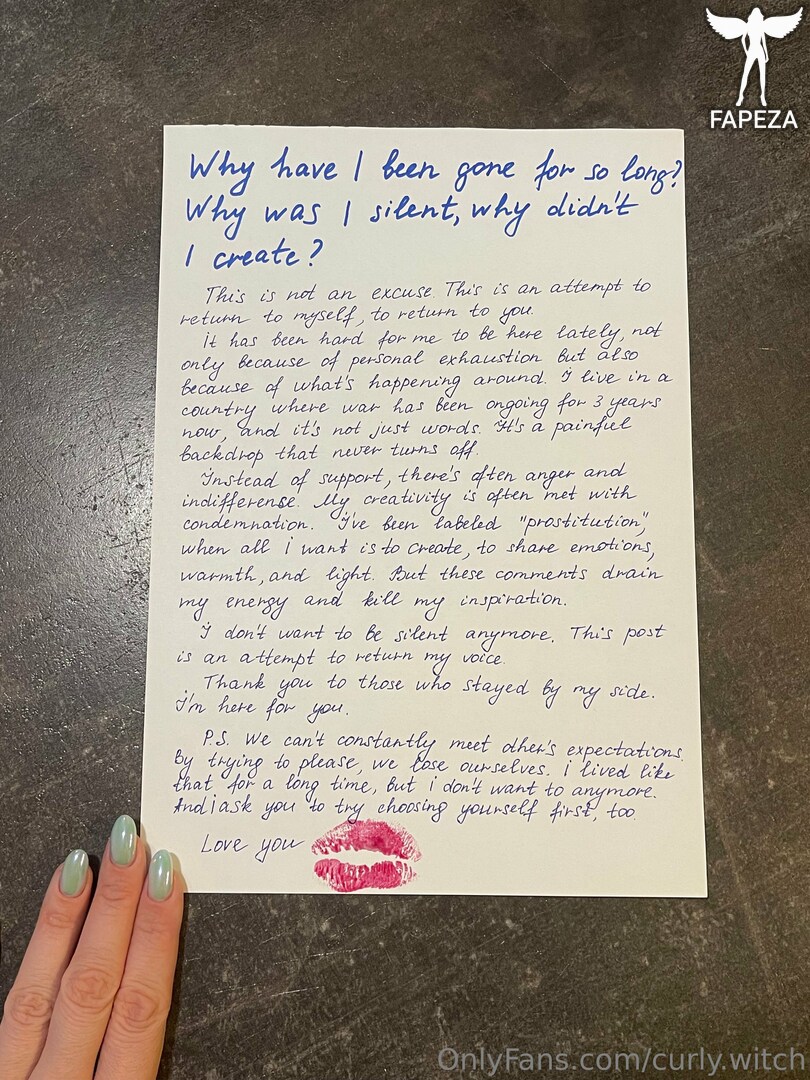 FAPEZA
Why have I been gone for so long?
Why was I silent, why didn't
I create?
This is not an excuse. This is an attempt to
return to myself, to return to you.
It has been hard for me to be here lately, not
only because of personal exhaustion but also
because of what's happening around. I live in a
country where war has been ongoing for 3 years
now, and it's not just words. It's a painful
backdrop that never turns off.
Instead of support, there's often anger and
indifferense. My creativity is often met with
condemnation. I've been labeled "prostitution",
when all i want is to create, to share emotions,
warmth, and light. But these comments drain
my energy and kill my inspiration.
I don't want to be silent anymore. This post
is an attempt to return my voice.
Thank you to those who stayed by my side.
I'm here for you.
P.S. We can't constantly meet other's expectations.
By trying to please, we lose ourselves. i lived like
that for a long time, but i don't want to anymore.
And i ask you to try choosing yourself first, too.
Love you
OnlyFans.com/curly.witch